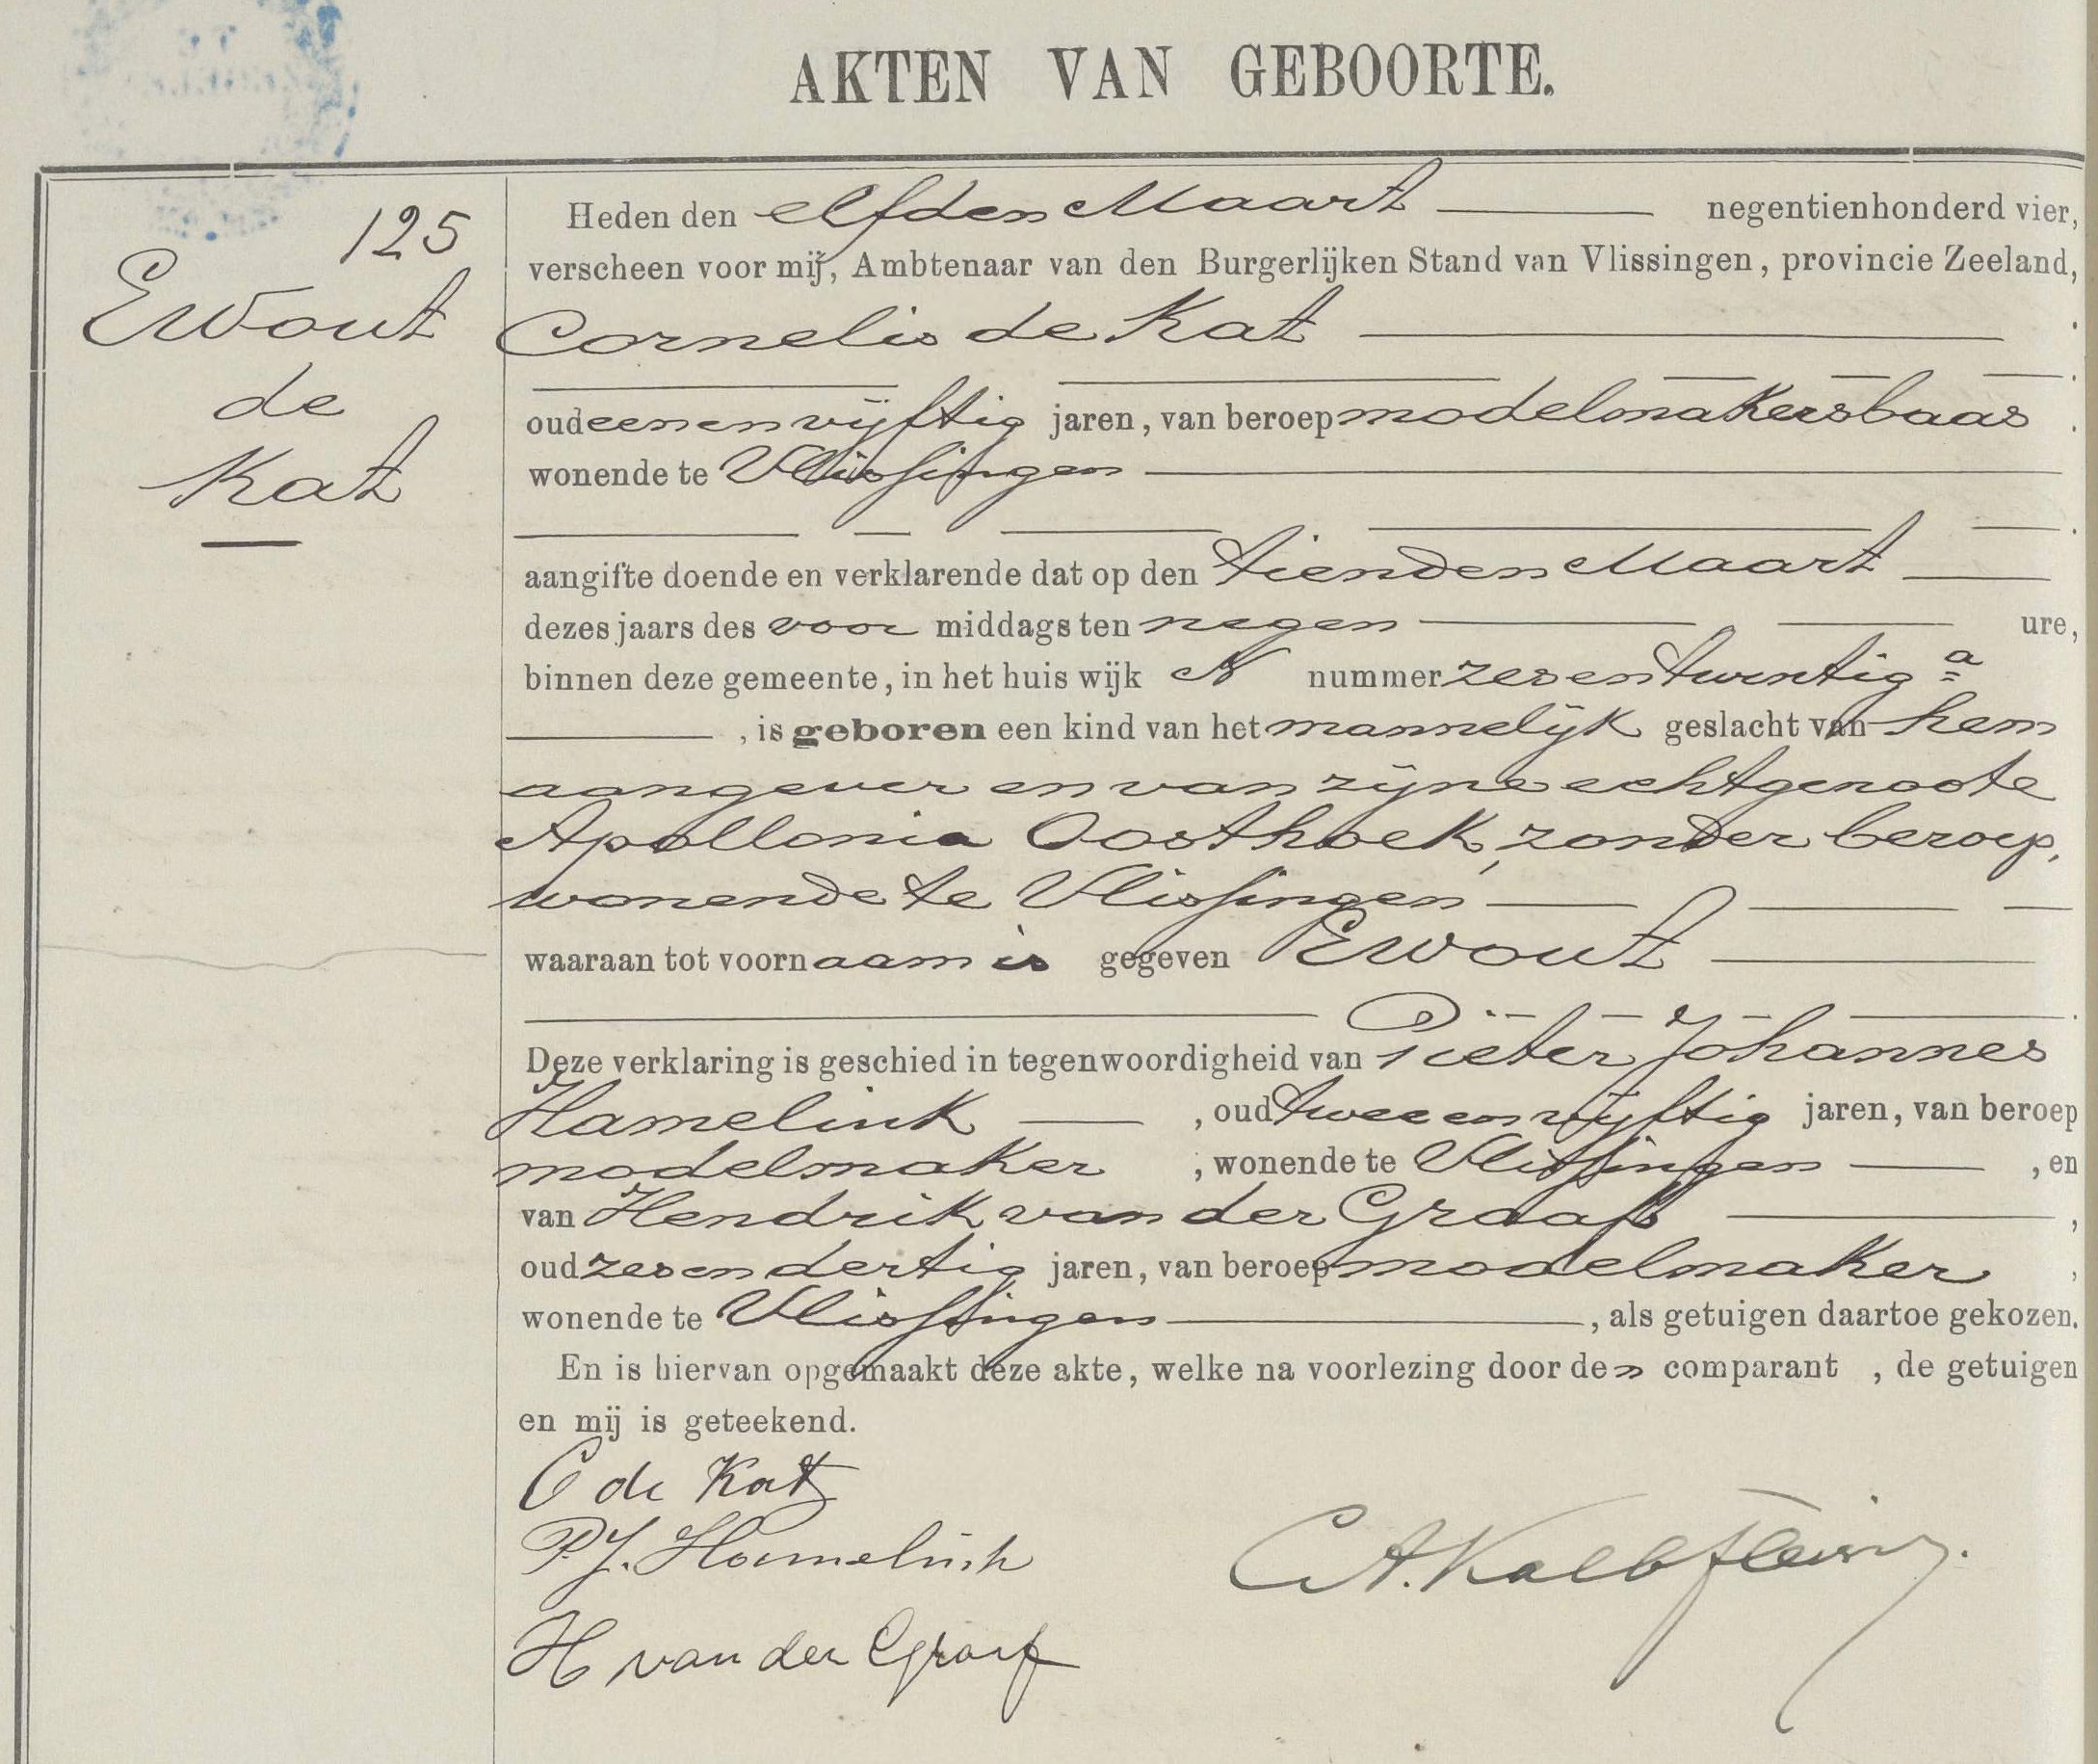 AKTEN VAN GEBOORTE.
125
Ewout
de
Kat
Heden den elfden Maart negentienhonderd vier,
verscheen voor mij, Ambtenaar van den Burgerlijken Stand van Vlissingen, provincie Zeeland,
Cornelis de Kat
oud eenenvijftig jaren, van beroep modelmakersbaas
wonende te Vlissingen
aangifte doende en verklarende dat op den tienden Maart
dezes jaars des voor middags ten negen ure,
binnen deze gemeente, in het huis wijk N nummer zesentwintig a
, is geboren een kind van het mannelijk geslacht van hem
aangever en van zijne echtgenoote
Apollonia Oosthoek, zonder beroep,
wonende te Vlissingen
waaraan tot voornaam is gegeven Ewout
Deze verklaring is geschied in tegenwoordigheid van Pieter Johannes
Hamelink , oud tweeenvijftig jaren, van beroep
modelmaker , wonende te Vlissingen , en
van Hendrik van der Graaf ,
oud zesendertig jaren, van beroep modelmaker ,
wonende te Vlissingen , als getuigen daartoe gekozen.
En is hiervan opgemaakt deze akte, welke na voorlezing door den comparant , de getuigen
en mij is geteekend.
C de Kat
P.J. Hamelink
H van der Graaf